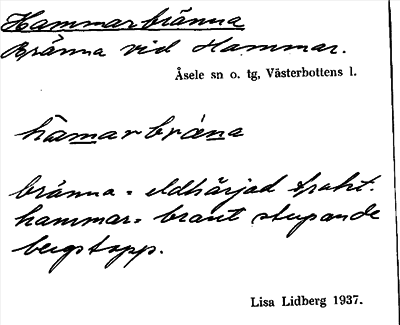 Hammarbränna
Bränna vid Hammar.
Åsele sn o. tg, Västerbottens l.
hamarbräna
bränna = eldhärjad trakt.
hammar = brant stupande
bergstopp.
Lisa Lidberg 1937.